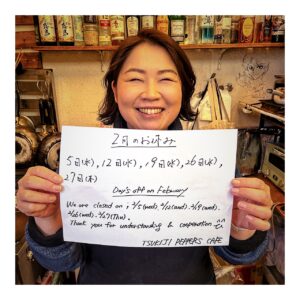 2月のお休み
5日(水), 12日(水), 19日(水), 26日(水),
27日(木)
Day's off on February
We are closed on ; 2/5(wed). 2/12(wed). 2/19(wed).
2/26(wed). 2/27(Thu).
Thank you for understanding & cooperation
TSUKIJI PEPPERS CAFE